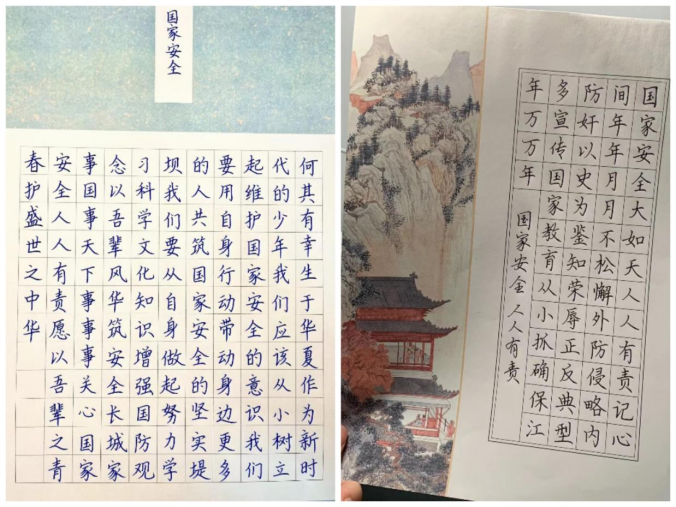 国家安全
何其有幸生于华夏作为新时
代的少年我们应该从小树立
起维护国家安全的意识我们
要用自身行动带动身边更多
的人共筑国家安全的坚实堤
坝我们要从自身做起努力学
习科学文化知识增强国防观
念以吾辈风华筑安全长城家
事国事天下事事事关心国家
安全人人有责愿以吾辈之青
春护盛世之中华
国家安全大如天人人有责记心
间年年月月不松懈外防侵略内
防奸以史为鉴知荣辱正反典型
多宣传国家教育从小抓确保江
年万万年
国家安全 人人有责